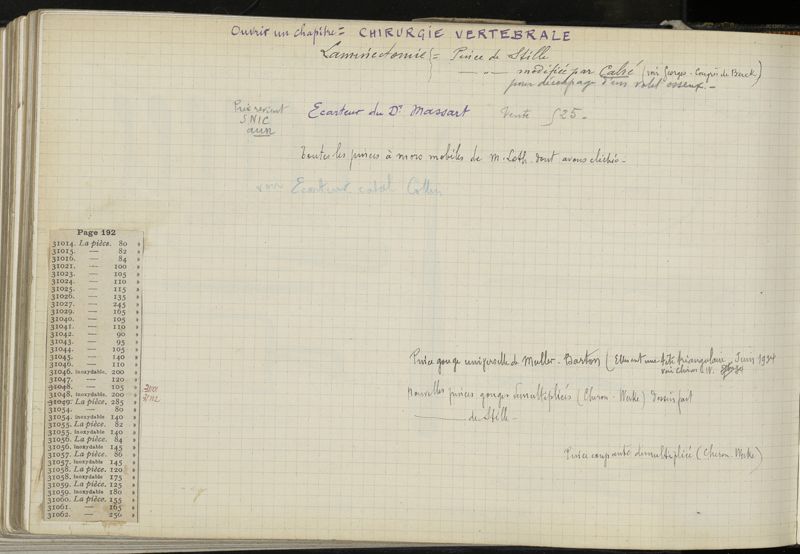 Ouvrir un chapitre = CHIRURGIE VERTEBRALE
Laminectomie = Pince de Stille
— " — modifiée par Calvé (voir Georges - Congrès de Berck)
pour découpage d'un volet osseux -
Prix revient
SNIC
Ecarteur du Dr Massart Vente 525 -
Toutes les pinces à mors mobiles de M. Loth dont avons clichés -
voir Ecarteur catal Collin
Page 192
31014. La pièce. 80 »
31015. — 82 »
31016. — 84 »
31021. — 100 »
31023. — 105 »
31024. — 110 »
31025. — 115 »
31026. — 135 »
31027. — 245 »
31029. — 165 »
31040. — 105 »
31041. — 110 »
31042. — 90 »
31043. — 95 »
31044. — 105 »
31045. — 140 »
31046. — 110 »
31046. inoxydable. 200 »
31047. — 120 »
31048. — 105 »
31048. inoxydable. 200 »
31049. La pièce. 285 »
31054. — 80 »
31054. inoxydable 140 »
31055. La pièce. 82 »
31055. inoxydable 140 »
31056. La pièce. 84 »
31056. inoxydable 145 »
31057. La pièce. 86 »
31057. inoxydable 145 »
31058. La pièce. 120 »
31058. inoxydable 175 »
31059. La pièce. 125 »
31059. inoxydable 180 »
31060. La pièce. 155 »
31061. — 165 »
31062. — 250 »
Pince gouge universelle de Muller - Barton (Elle est une tête triangulaire Juin 1934
voir chiron
Nouvelles pinces gouges démultipliées (Chiron - Werke) dessin fait
— de Stille -
Pince coupante démultipliée (Chiron - Werke)